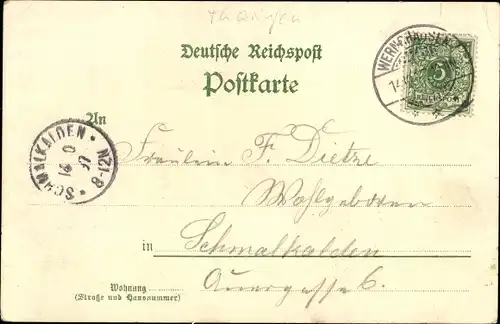 Thüringen
Deutsche Reichspost
Postkarte
WERNSHAUSEN
5
An
SCHMALKALDEN
8-12N
Fräulein F. Dietze
Wohlgeboren
in Schmalkalden
Auergasse 6.
Wohnung
(Straße und Hausnummer)